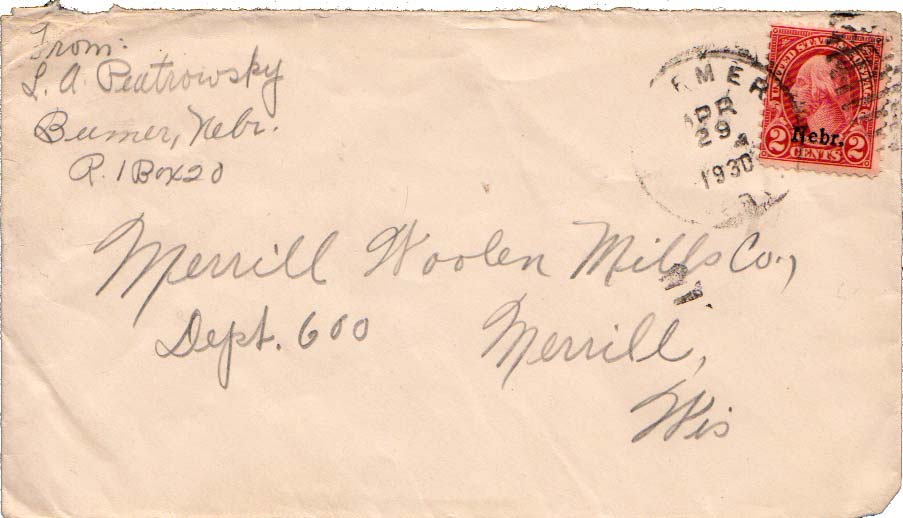 From:
L. A. Peatrowsky
Beemer, Nebr.
R. 1 Box 20
EMER
APR
29
1930
UNITED STATES POSTAGE
Nebr.
2 CENTS 2
Merrill Woolen Mills Co.,
Dept. 600 Merrill,
Wis